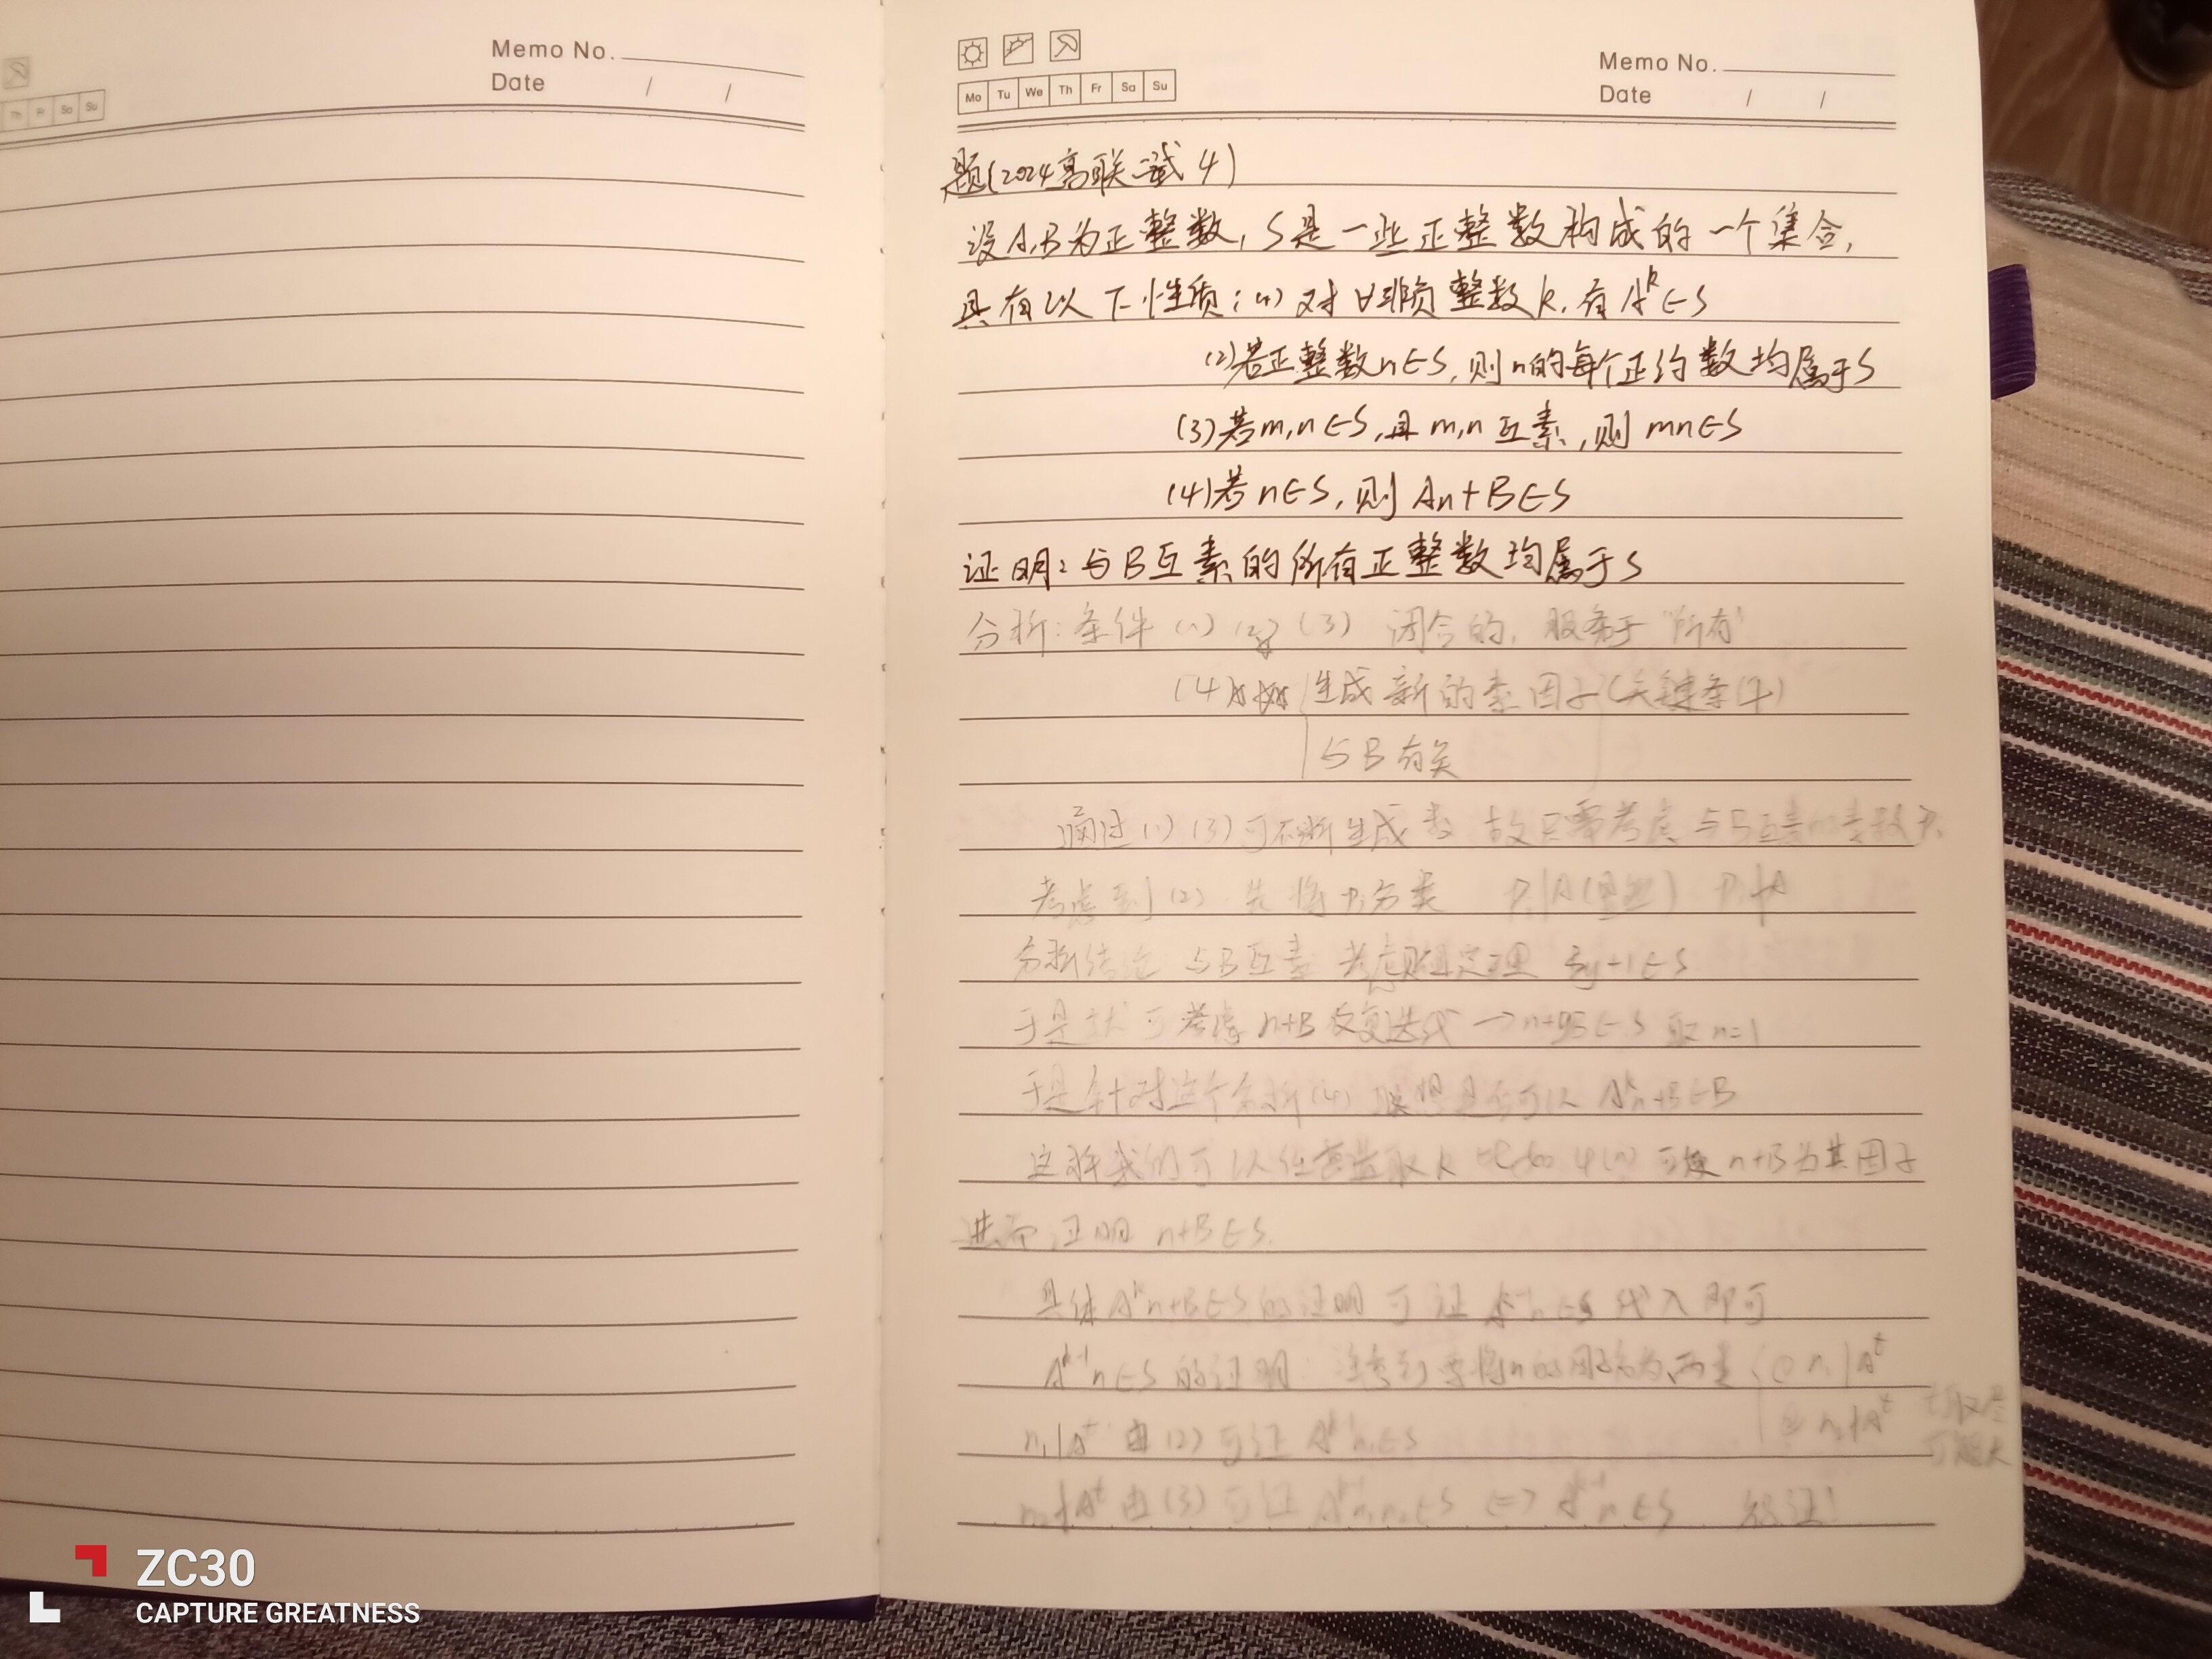 Memo No.
Date / /
Th Fr Sa Su
Mo Tu We Th Fr Sa Su
Memo No.
Date / /
题(2024高联二试4)
设A,B为正整数,S是一些正整数构成的一个集合,
具有以下性质:(1)对∀非负整数k,有A^k∈S
(2)若正整数n∈S,则n的每个正约数均属于S
(3)若m,n∈S,且m,n互素,则mn∈S
(4)若n∈S,则An+B∈S
证明:与B互素的所有正整数均属于S
分析:条件(1)(2)(3)闭合的,服务于"所有"
(4) 生成新的素因子(关键条件)
与B有关
通过(1)(3)可不断生成 故只需考虑与B互素的素数P.
考虑到(2).先将P分类 P|A(显然) P∤A
分析结论 与B互素 考虑 定理 By+1∈S
于是就可考虑n+B反复迭代→n+yB∈S 取n=1
于是针对这个分析(4) 是否可以 A^k n+B∈B
这样我们可以任意选取k φ(n) 可使n+B为其因子
进而证明 n+B∈S.
具体A^k n+B∈S的证明 可证 A^{k-1}n∈S代入即可
A^{k-1}n∈S的证明: 要将n的因子分为两类 ① n₁|A^t
② n₂∤A^t t取尽可能大
n₁|A^t 由(2)可证 A^{k-1}n₁∈S
n₂∤A^t 由(3)可证 A^{k-1}n₁n₂∈S ⇔ A^{k-1}n∈S 得证!
ZC30
CAPTURE GREATNESS